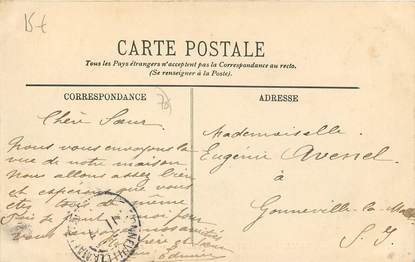 15€
CARTE POSTALE
Tous les Pays étrangers n'acceptent pas la Correspondance au recto.
(Se renseigner à la Poste).
CORRESPONDANCE
Chère Sœur
Nous vous envoyons la
vue de notre maison
Nous allons assez bien
et espérons que vous
etes tous de même
pour moi pour
vous
ADRESSE
Mademoiselle
Eugénie Avenel
à
Gonneville-la-M
S. I